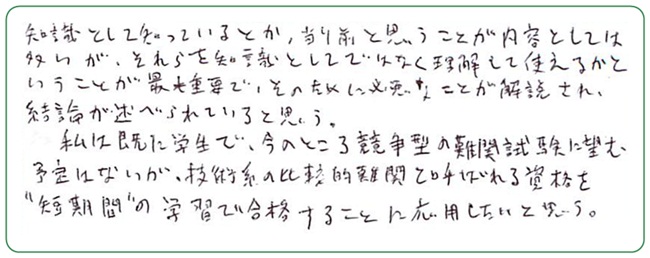 知識として知っているとか、当り前と思うことが内容としては
多いが、それらを知識としてではなく理解して使えるかと
いうことが最も重要で、そのために必要なことが解説され、
結論が述べられていると思う。
私は既に学生で、今のところ競争型の難関試験に望む
予定はないが、技術系の比較的難関と呼ばれる資格を
"短期間"の学習で合格することに応用したいと思う。